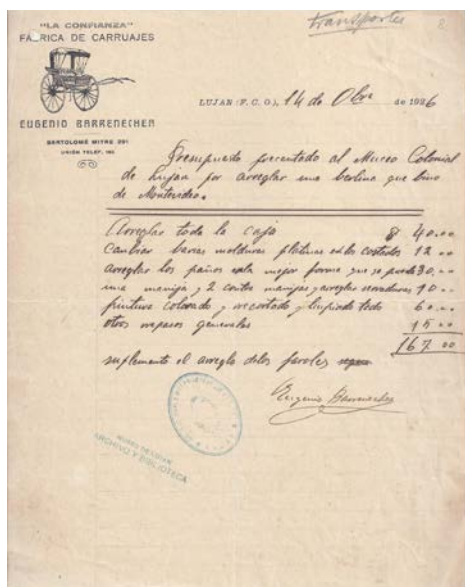 transportes
"LA CONFIANZA"
FABRICA DE CARRUAJES
EUGENIO BARRENECHEA
BARTOLOMÉ MITRE 291
UNION TELEF.
LUJAN (F. C. O.), 14 de Obre de 1926
Presupuesto precentado al Museo Colonial
de Lujan por arreglar una berlina que bino
de Montevideo.
Arreglar toda la caja $ 40.00
Cambiar barias molduras platinas costados 12 ..
arreglar los paños mejor forma que se pueda 30 ..
una manija y 2 contra manijas y arreglar serraduras 10 ..
pintura colorado y recortado y limpiado todo 60 ..
otros repasos generales 15 ..
167 00
suplemento el arreglo delos faroles
Eugenio Barrenechea
MUSEO DE LUJAN
ARCHIVO Y BIBLIOTECA